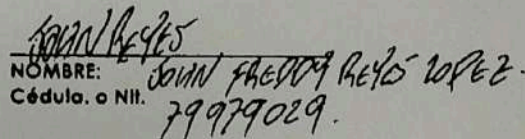 JOHN REYES
NOMBRE: JOHN FREDDY REYES LOPEZ.
Cédula. o Nit. 79979029.